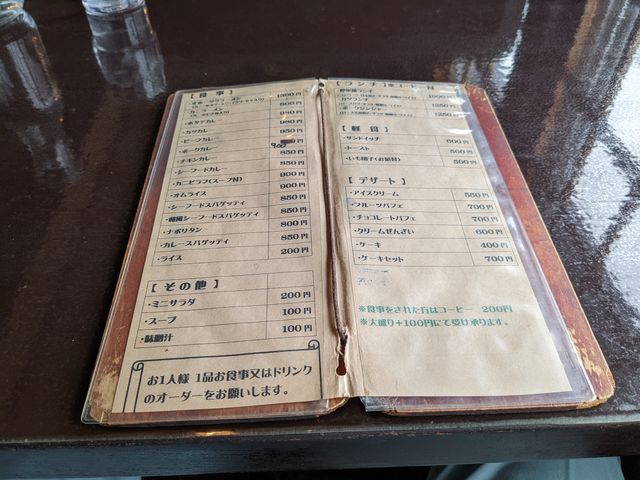 【 食 事 】
1300円
800円
980円
・ホタテカレー 980円
・カツカレー 950円
・ビーフカレー 900
・ポークカレー 850円
・チキンカレー 850円
・シーフードカレー 900円
・カニピラフ(スープ付) 900円
・オムライス 850円
・シーフードスパゲッティ 850円
・韓風シーフードスパゲッティ 850円
・ナポリタン 800円
・カレースパゲッティ 850円
・ライス 200円
【 その他 】
・ミニサラダ 200円
・スープ 100円
・味噌汁 100円
お1人様 1品お食事又はドリンク
のオーダーをお願いします。
【 ランチ 】※コーヒー 付
1000円
・カツランチ 1250円
・ポークジンジャー 1250円
【 軽 食 】
・サンドイッチ 600円
・トースト 500円
・いも団子(お新付) 500円
【 デザート 】
・アイスクリーム 550円
・フルーツパフェ 700円
・チョコレートパフェ 700円
・クリームぜんざい 600円
・ケーキ 400円
・ケーキセット 700円
※食事をされた方はコーヒー 200円
※大盛り+100円にて受け承ります。